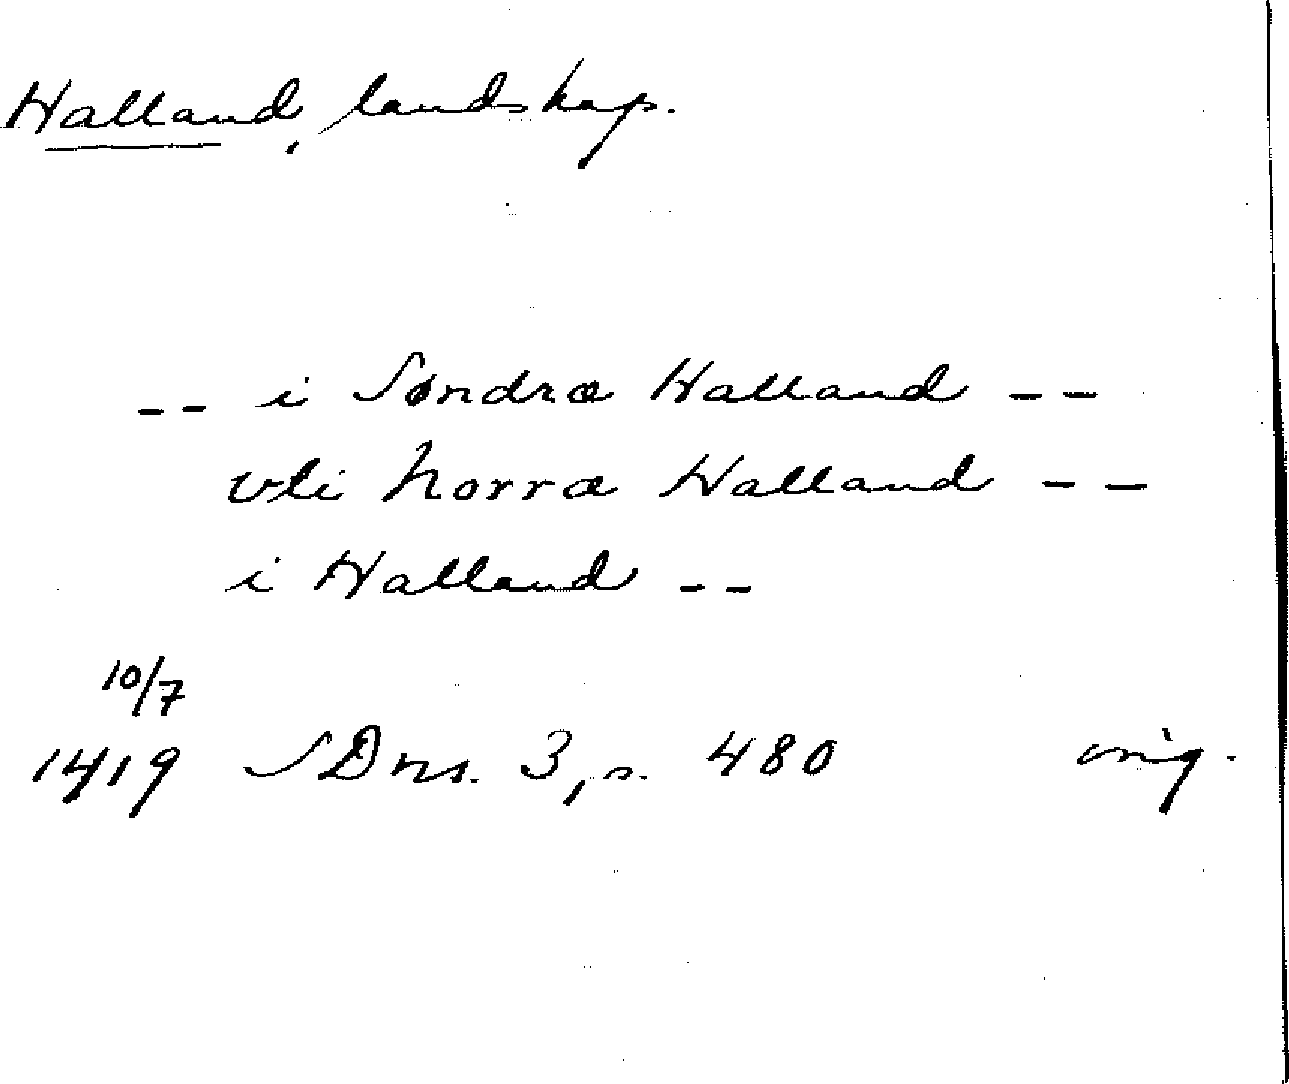 Halland, landskap.
-- i Søndræ Halland --
vti Norræ Halland --
i Halland --
10/7
1419 SDns. 3, s. 480 orig.